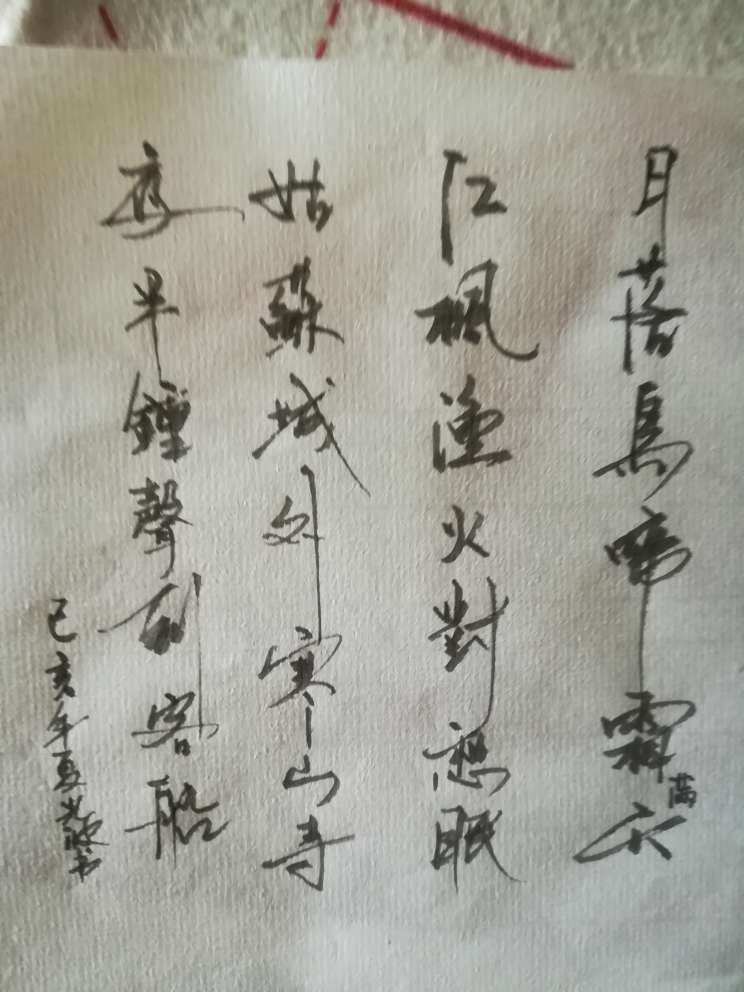 月落烏啼霜滿天
江楓漁火對愁眠
姑蘇城外寒山寺
夜半鐘聲到客船
己亥年夏光順书